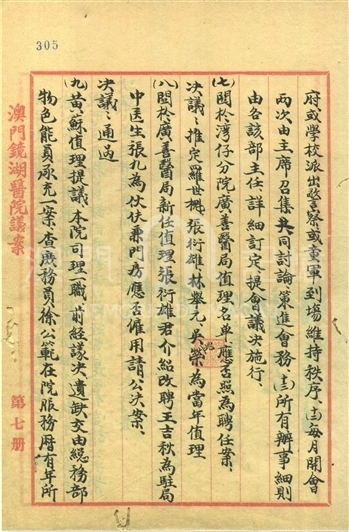 305
府或學校派出警察或童軍到場維持秩序、(十四)每月開會
兩次由主席召集共同討論策進會務、(十五)所有辦事細則
由各該部主任詳細訂定提會議決施行、
(七)關於灣仔分院廣善醫局值理名單、應否照為聘任案、
決議、推定羅世機、張衍雄、林舉元、吳榮為當年值理
(八)關於廣善醫局新任值理張衍雄君介紹改聘王吉秋為駐局
中医生張扎為伙伕兼門房應否僱用請公決案、
決議、通過
(九)黃蘇值理提議本院司理一職前經議決遺缺交由總務部
物色能員承充一案、查庶務員徐公範在院服務曆有年所
澳門鏡湖醫院議案
第七册